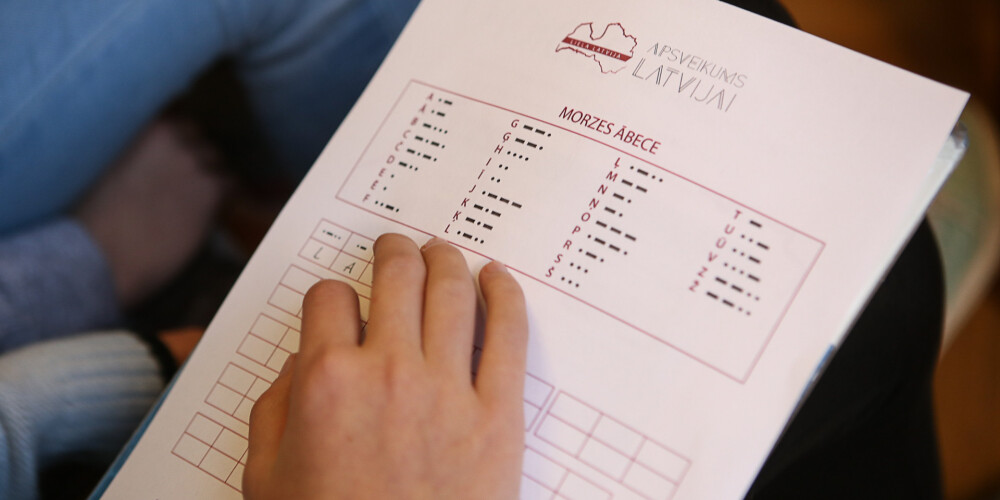 LIELA LATVIJA
APSVEIKUMS
LATVIJAI
MORZES ĀBECE
A ·–
Ā ·–
B –···
C –·–·
Č –·–·
D –··
E ·
Ē ·
F ··–·
G ––·
Ģ ––·
H ····
I ··
Ī ··
J ·–––
K –·–
Ķ –·–
L ·–··
Ļ ·–··
M ––
N –·
Ņ –·
O –––
P ·––·
R ·–·
S ···
Š ···
T –
U ··–
Ū ··–
V ···–
Z ––··
Ž ––··
·–·· ·–
L A